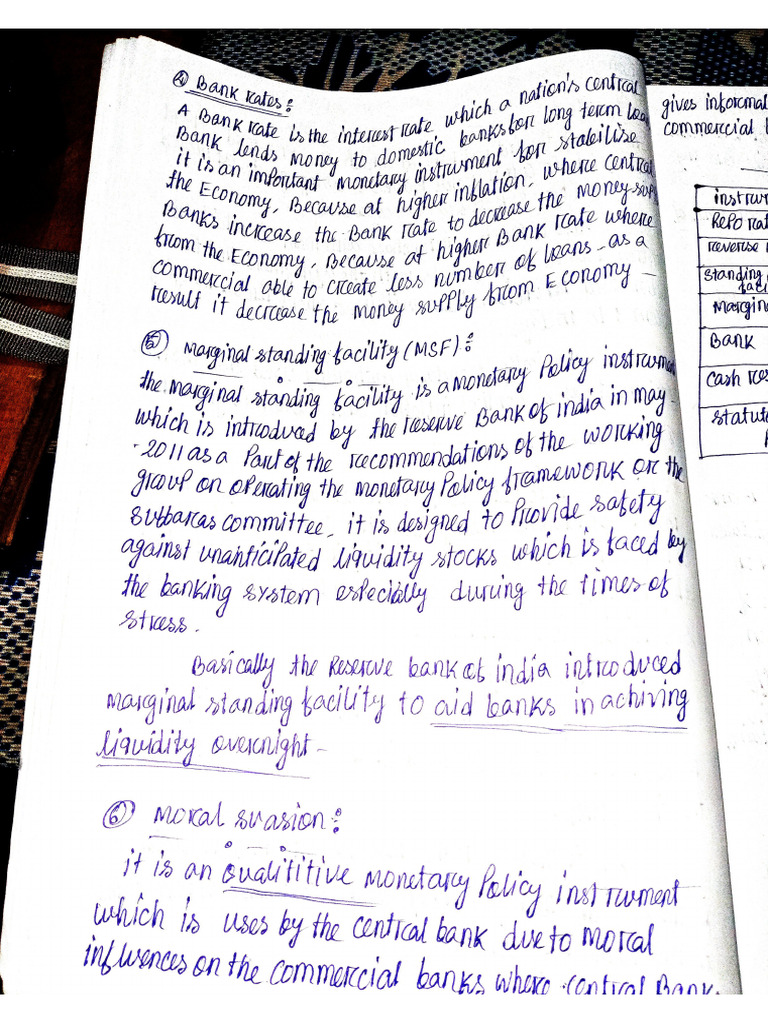 ④ Bank rates:
A Bank rate is the interest rate which a nation's central
Bank lends money to domestic banks for long term loan
it is an important monetary instrument for stabilise
the Economy, Because at higher inflation, where central
Banks increase the Bank rate to decrease the money supply
from the Economy. Because at higher Bank rate where
commercial able to create less number of loans - as a
result it decrease the money supply from Economy -
⑤ Marginal standing facility (MSF):
the marginal standing facility is a monetary Policy instrument
which is introduced by the reserve Bank of india in may -
- 2011 as a Part of the recommendations of the working
group on operating the monetary Policy framework or the
subbaras committee, it is designed to Provide safety
against unanticipated liquidity stocks which is faced by
the banking system especially during the times of
stress.
Basically the Reserve bank of india introduced
marginal standing facility to aid banks in achiving
liquidity overnight -
⑥ Moral suasion:
it is an Qualititive monetary Policy instrument
which is uses by the central bank due to moral
influences on the commercial banks where central Bank
gives informat
commercial
instrum
Repo rat
reverse
standing
faci
Margin
Bank
Cash res
Statut